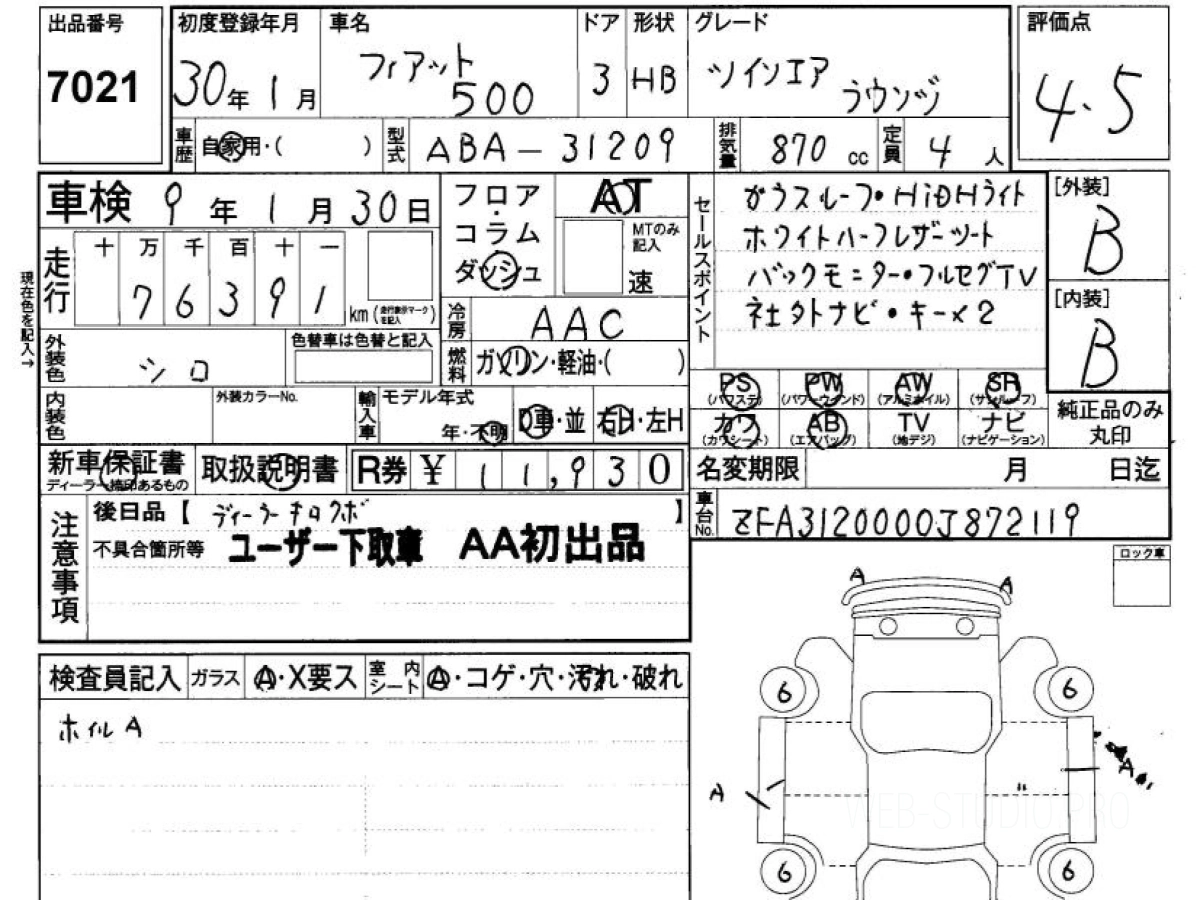 出品番号
7021
初度登録年月
30年1月
車名
フィアット
500
ドア
3
形状
HB
グレード
ツインエア
ラウンヅ
評価点
4.5
車歴
自家用・( )
型式
ABA-31209
排気量
870 cc
定員
4 人
車検 9年1月30日
フロア・コラム
ダッシュ
AT
MTのみ記入
速
セールスポイント
ガラスルーフ・HiDHライト
ホワイトハーフレザーシート
バックモニター・フルセグTV
社外ナビ・キー×2
[外装]
B
[内装]
B
現在色を記入→
走行
十 万 千 百 十 一
7 6 3 9 1
km (走行表示マークを記入)
冷房
AAC
外装色
シロ
色替車は色替と記入
燃料
ガソリン・軽油・( )
PS
(パワステ)
PW
(パワーウインド)
AW
(アルミホイル)
SR
(サンルーフ)
カワ
(カワシート)
AB
(エアバッグ)
TV
(地デジ)
ナビ
(ナビゲーション)
純正品のみ
丸印
内装色
外装カラーNo.
輸入車
モデル年式
年・不明
D車・並
右H・左H
新車保証書
ディーラー捺印あるもの
取扱説明書
R券 ¥ 11,930
名変期限 月 日迄
車台No.
ZFA3120000J872119
注意事項
後日品【 ディーラーキロクボ 】
不具合箇所等 ユーザー下取車 AA初出品
ロック車
検査員記入
ガラス
A・X要ス
室内シート
A・コゲ・穴・汚れ・破れ
ホイルA
A
A
6
6
A
A
6
6
WEB-STUDIO.PRO